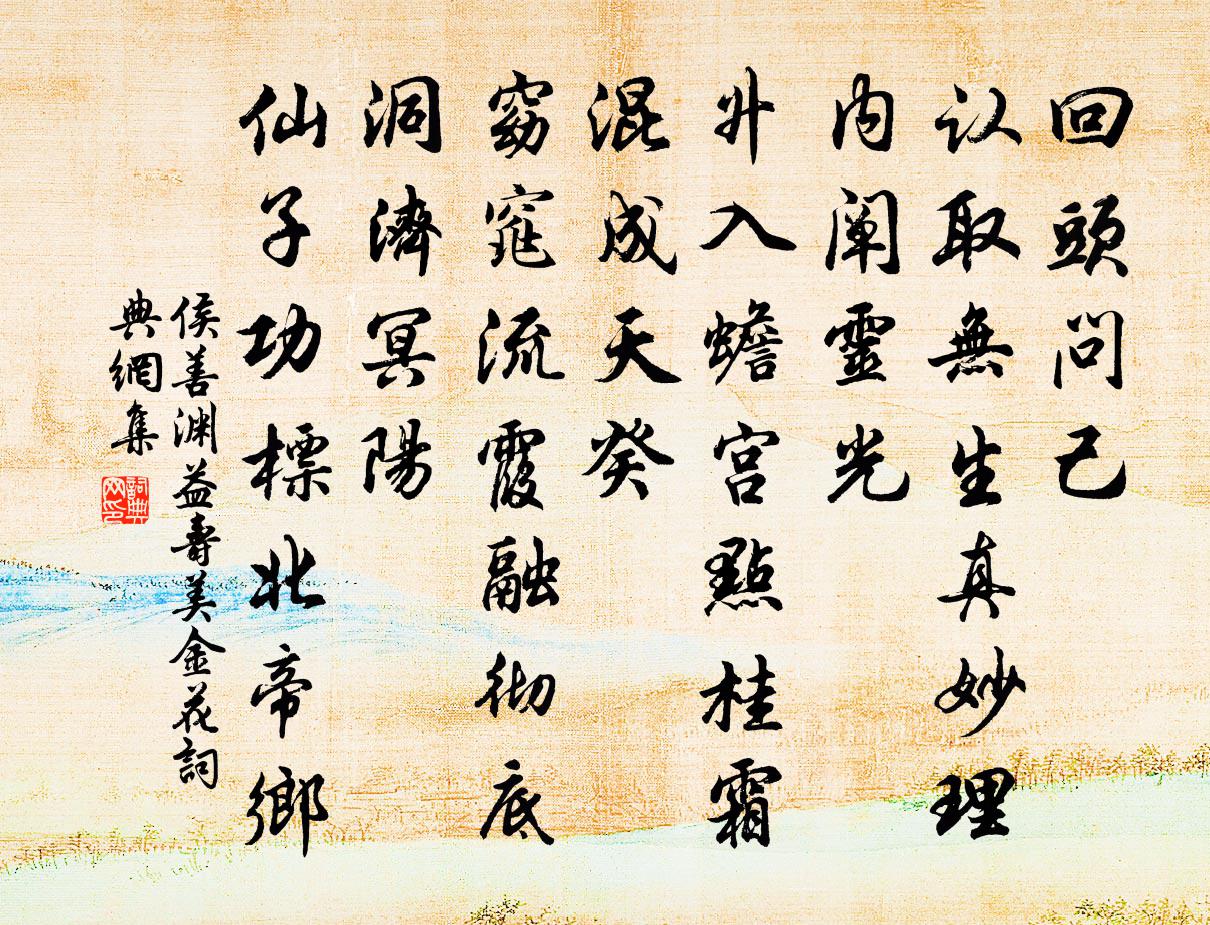 回頭問己
认取無生真妙理
内阐靈光
升入蟾宫點桂霜
混成天癸
窈窕流霞融彻底
洞濟冥陽
仙子功標北帝鄉
侯善渊益壽美金花詞
典網集
詞典网印